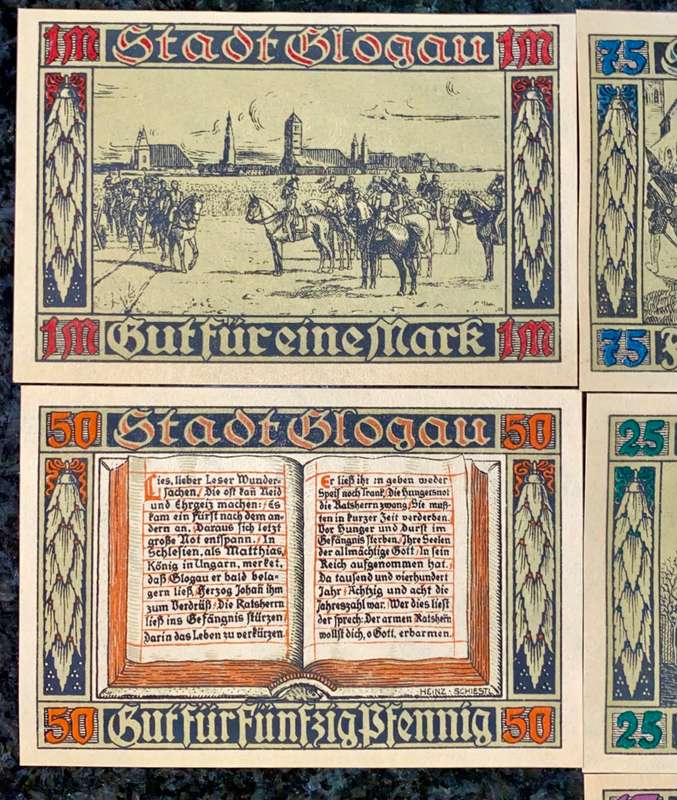 1M Stadt Glogau 1M
1M Gut für eine Mark 1M
75
75
50 Stadt Glogau 50
Lies, lieber Leser Wunder-
sachen, Die oft kan Neid
und Ehrgeiz machen: Es
kam ein Fürst nach dem an-
dern an, Daraus sich letzt
große Not entspann. In
Schlesien, als Matthias,
König in Ungarn, merket,
daß Glogau er bald bela-
gern ließ, Herzog Johañ ihm
zum Verdrüß, Die Ratsherrn
ließ ins Gefängnis stürzen
Darin das Leben zu verkürzen.
Er ließ ihn geben weder
Speis noch Trank, Die Hungersnot
die Ratsherrn zwang, Sie muß-
ten in kurzer Zeit verderben.
Vor Hunger und Durst im
Gefängnis sterben, Ihre Seelen
der allmächtige Gott, In sein
Reich aufgenommen hat.
Da tausend und vierhundert
Jahr, Achtzig und acht die
Jahreszahl war. Wer dies liest
der sprech: Der armen Ratsherrn
wollst dich, o Gott, erbarmen.
HEINZ · SCHIESTL
50 Gut für Fünfzig Pfennig 50
25
25